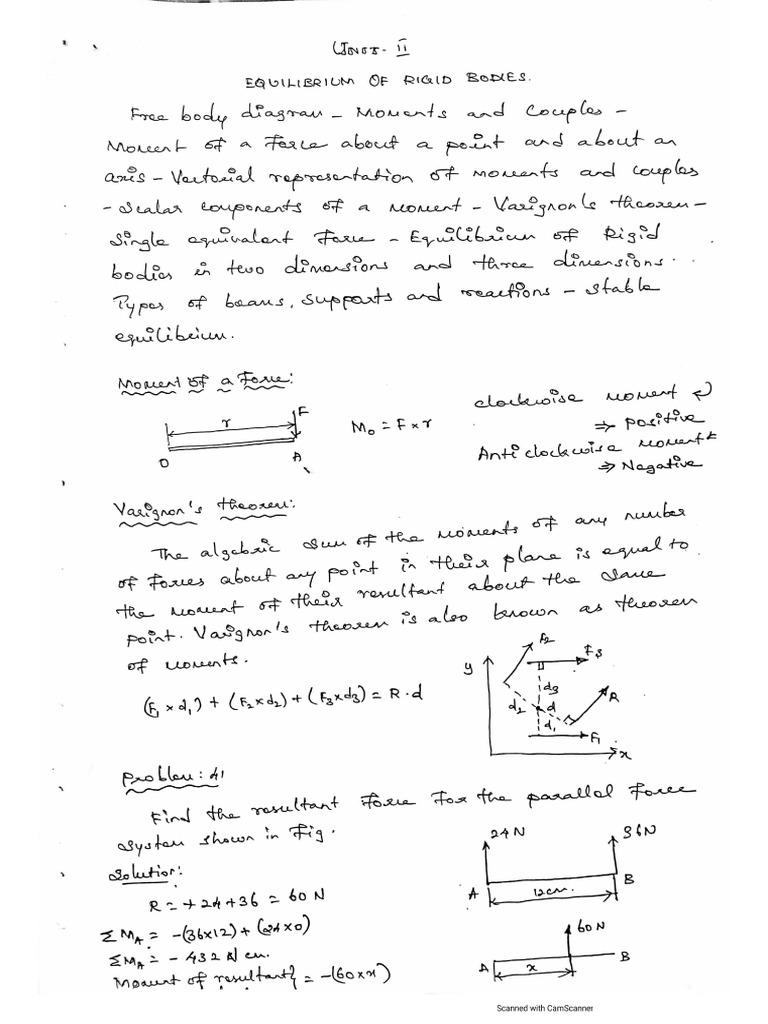 Unit - II
EQUILIBRIUM OF RIGID BODIES.
Free body diagram - Moments and Couples -
Moment of a Force about a point and about an
axis - Vectorial representation of moments and couples
- Scalar components of a moment - Varignon's theorem -
Single equivalent Force - Equilibrium of Rigid
bodies in two dimensions and three dimensions.
Types of beams, supports and reactions - Stable
equilibrium.
Moment of a Force:
r
F
O
A
M₀ = F × r
clockwise moment ↻
⇒ Positive
Anti clockwise moment
⇒ Negative
Varignon's theorem:
The algebric sum of the moments of any number
of forces about any point in their plane is equal to
the moment of their resultant about the same
point. Varignon's theorem is also known as theorem
of moments.
(F₁ × d₁) + (F₂ × d₂) + (F₃ × d₃) = R · d
y
F₂
F₃
d₃
R
d₂
d
d₁
F₁
x
Problem: 41
Find the resultant force for the parallel force
system shown in Fig.
24 N
36 N
A
12cm.
B
Solution:
R = + 24 + 36 = 60 N
ΣM_A = -(36×12) + (24×0)
ΣM_A = - 432 N cm.
Moment of resultant} = -(60×x)
60 N
A
x
B
Scanned with CamScanner